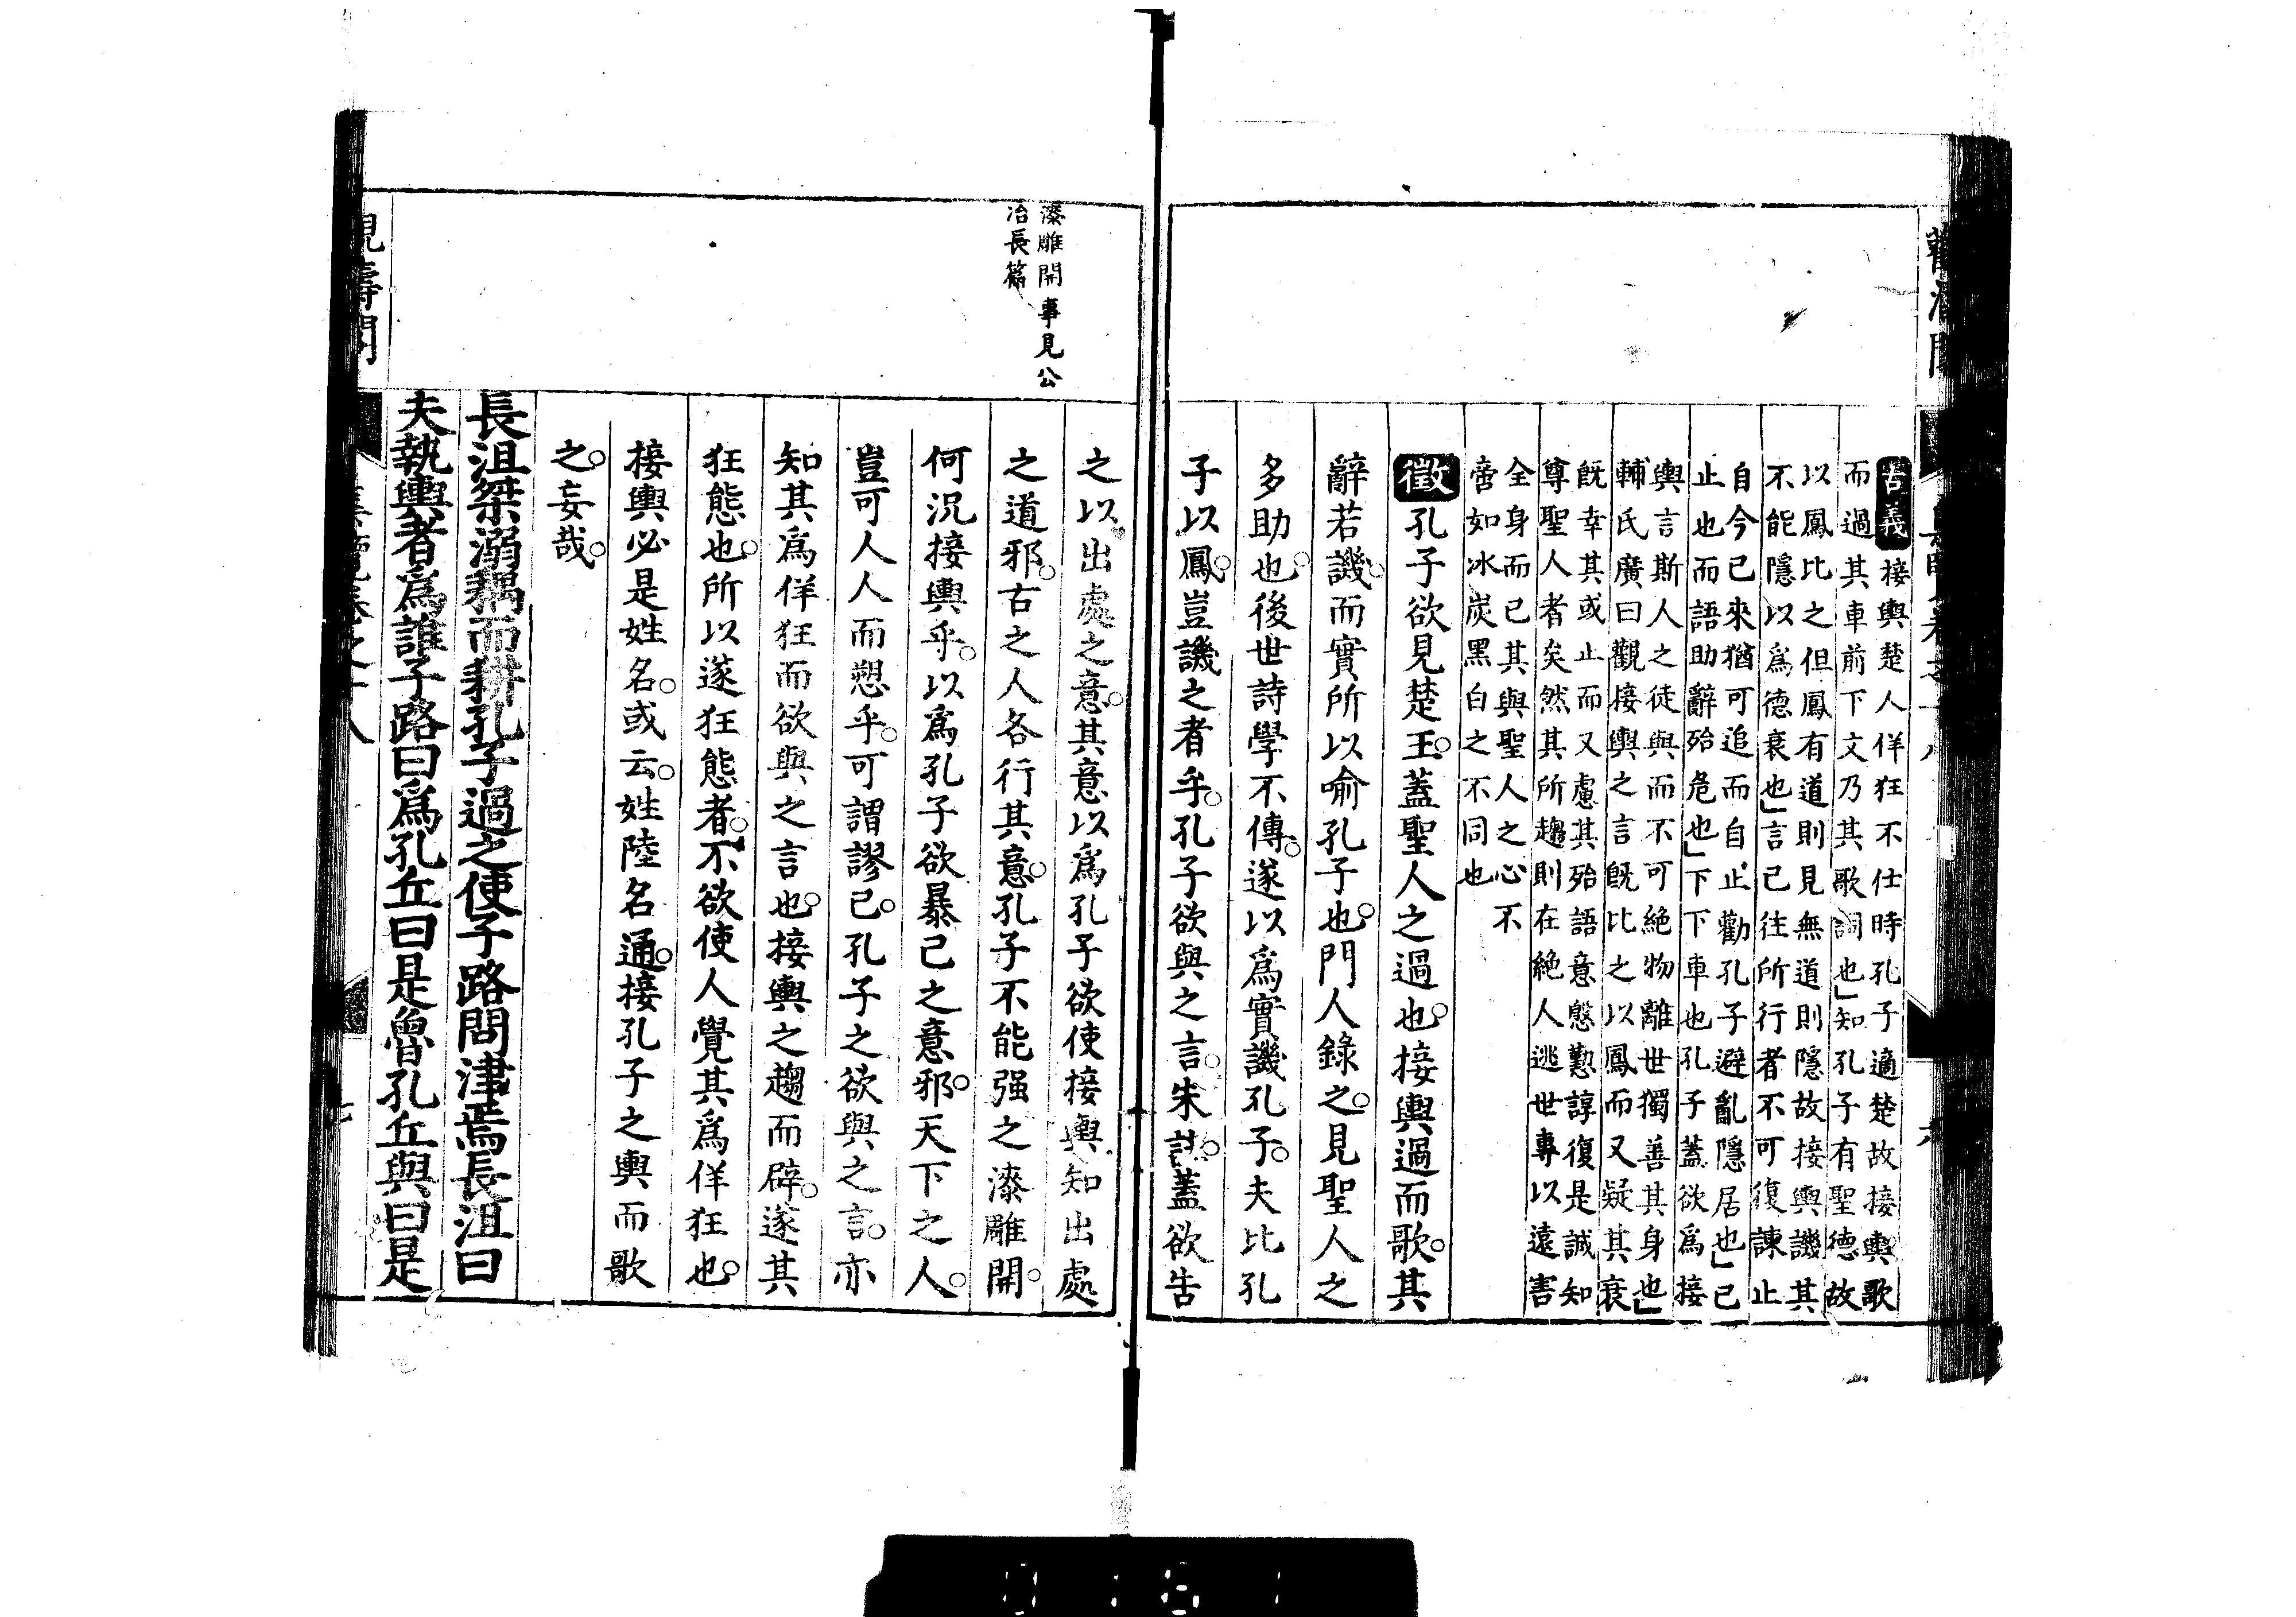 古義接輿楚人佯狂不仕時孔子適楚故接輿歌
而過其車前下文乃其歌詞也」知孔子有聖德故
以鳳比之但鳳有道則見無道則隱故接輿譏其
不能隱以爲德衰也」言已往所行者不可復諫止
自今已來猶可追而自止勸孔子避亂隱居也」已
止也而語助辭殆危也」下下車也孔子蓋欲爲接
輿言斯人之徒與而不可絶物離世獨善其身也」
輔氏廣曰觀接輿之言旣比之以鳳而又疑其衰
旣幸其或止而又慮其殆語意慇懃諄復是誠知
尊聖人者矣然其所趨則在絶人逃世專以遠害
全身而已其與聖人之心不
啻如冰炭黑白之不同也
徵孔子欲見楚王蓋聖人之過也接輿過而歌其
辭若譏而實所以喻孔子也門人錄之見聖人之
多助也後世詩學不傳遂以爲實譏孔子夫比孔
子以鳳豈譏之者乎孔子欲與之言朱註蓋欲告
漆雕開事見公
冶長篇
之以出處之意其意以爲孔子欲使接輿知出處
之道邪古之人各行其意孔子不能强之漆雕開
何況接輿乎以爲孔子欲暴己之意邪天下之人
豈可人人而愬乎可謂謬已孔子之欲與之言亦
知其爲佯狂而欲與之言也接輿之趨而辟遂其
狂態也所以遂狂態者不欲使人覺其爲佯狂也
接輿必是姓名或云姓陸名通接孔子之輿而歌
之妄哉
長沮桀溺耦而耕孔子過之使子路問津焉長沮曰
夫執輿者爲誰子路曰爲孔丘曰是魯孔丘與曰是